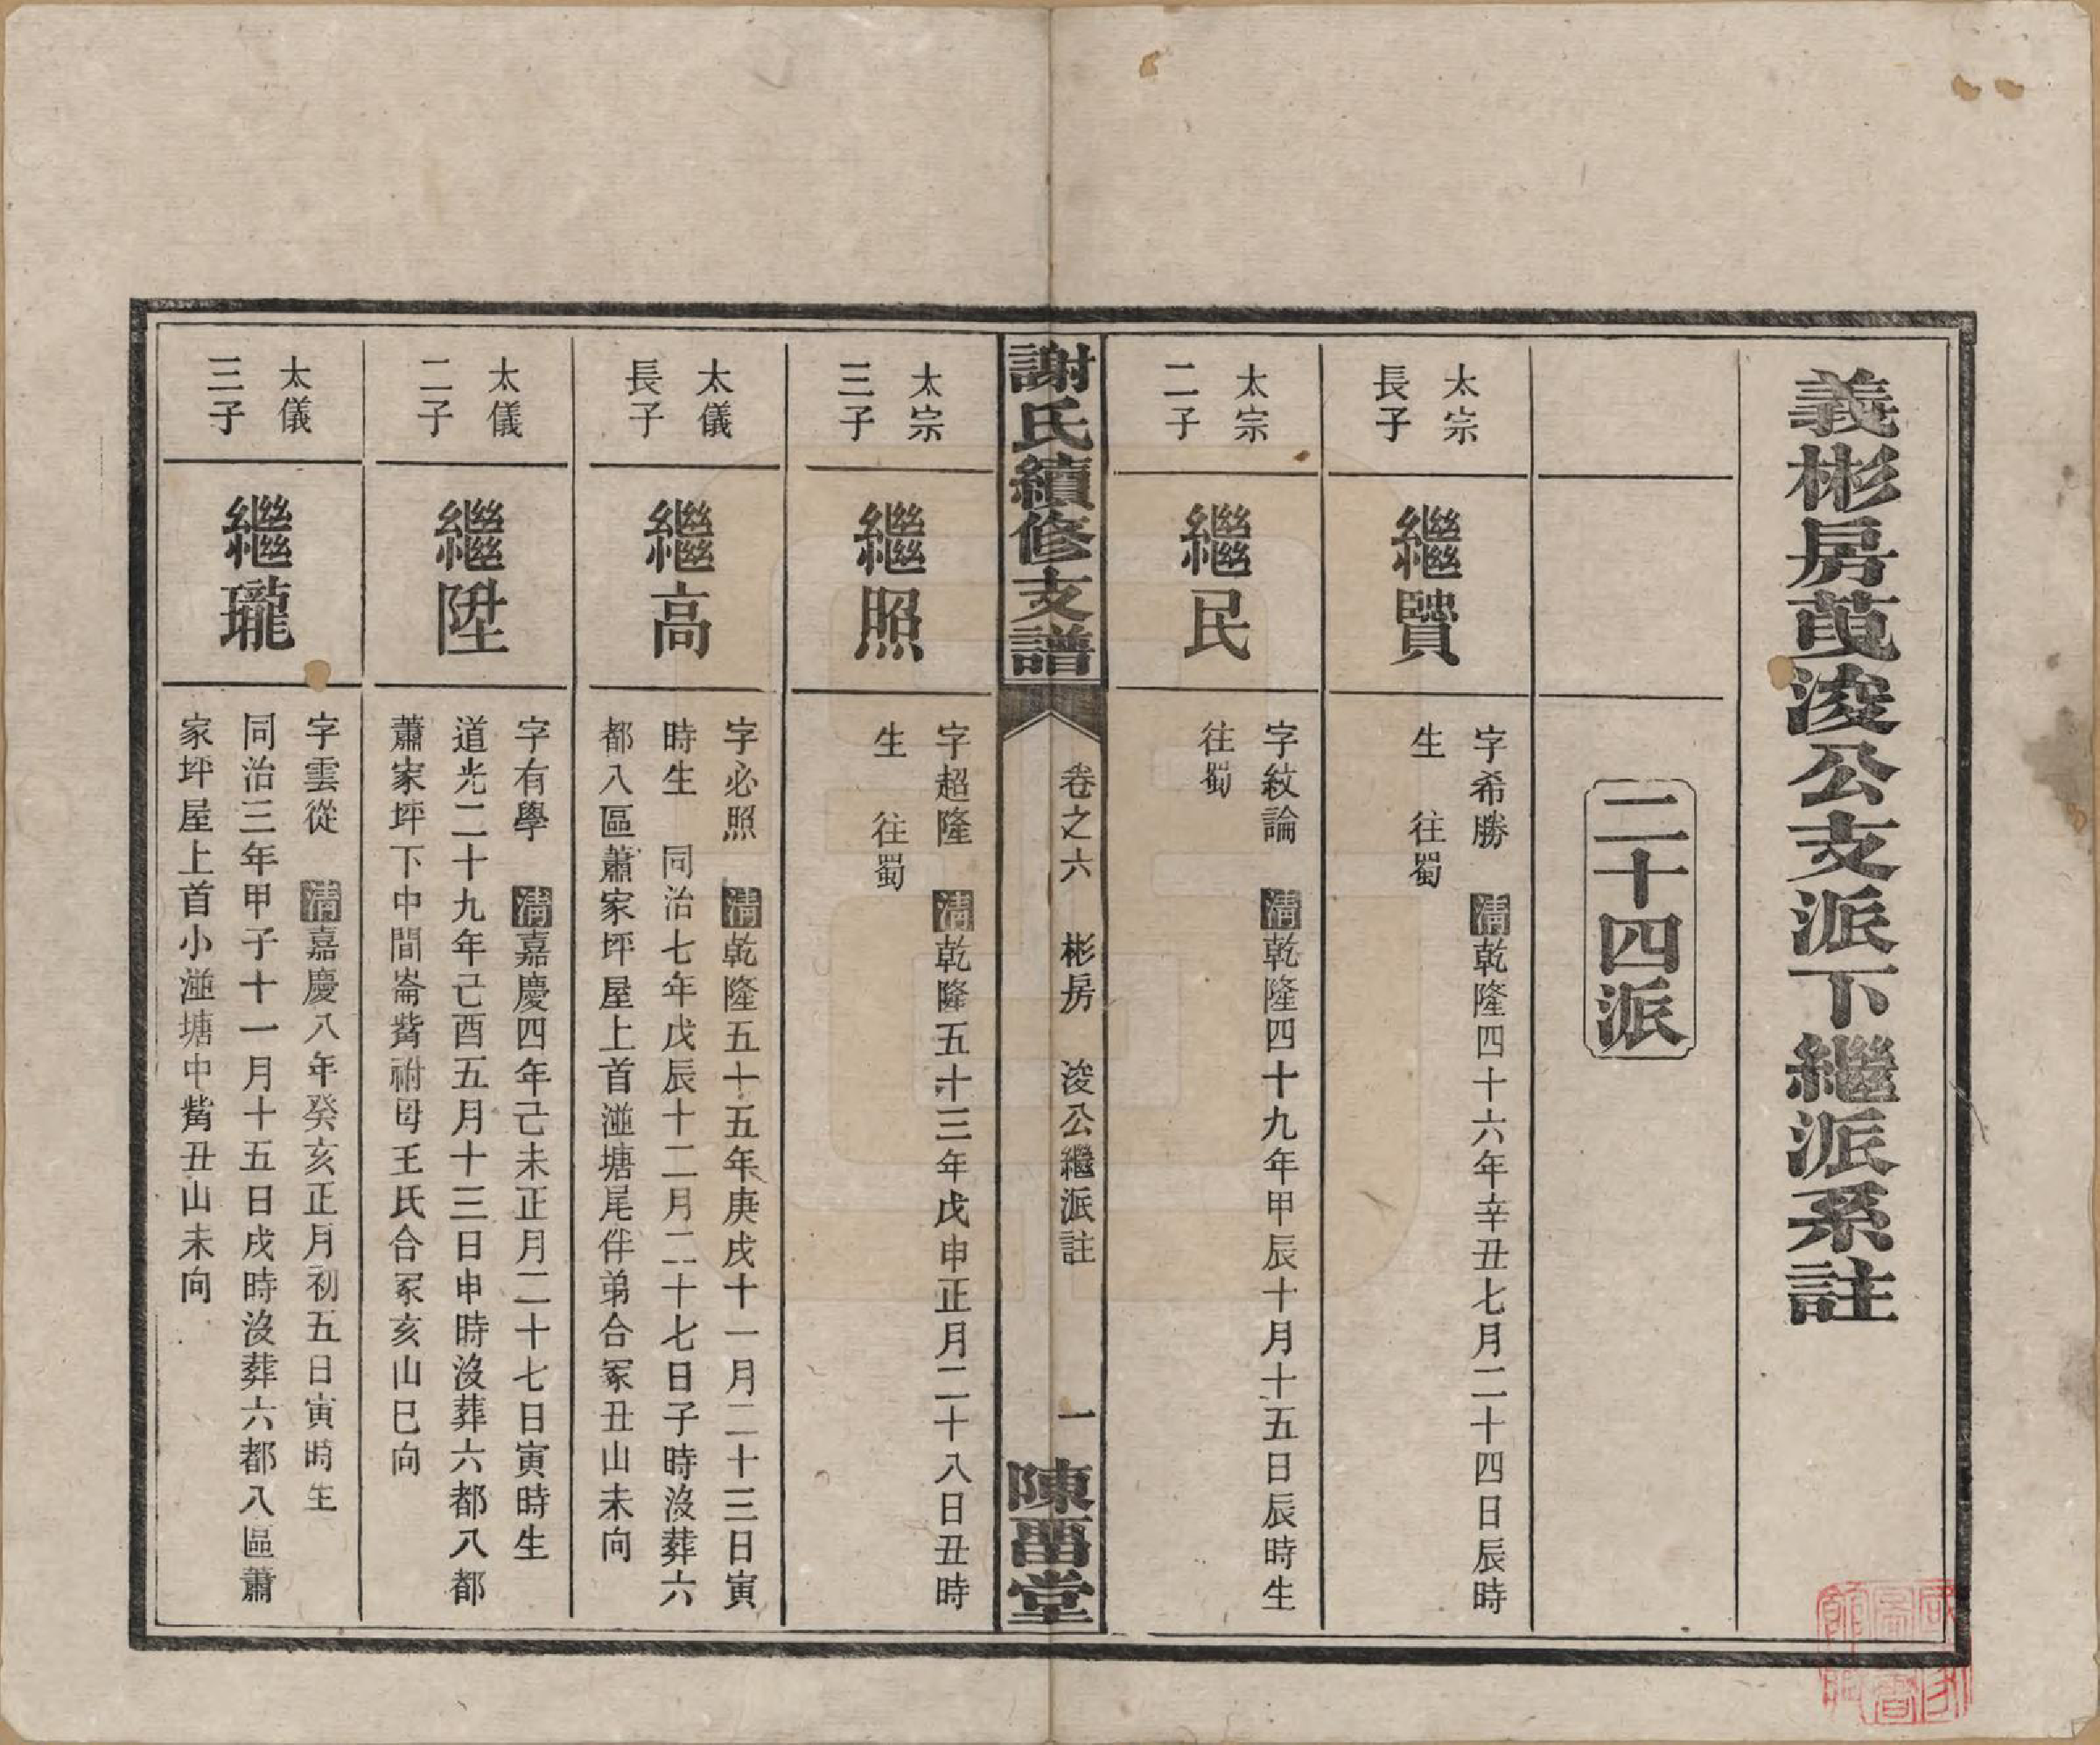 義彬房萸浚公支派下繼派系註
二十四派
太宗
長子
繼贒
字希勝　清乾隆四十六年辛丑七月二十四日辰時
生　往蜀
太宗
二子
繼民
字紋論　清乾隆四十九年甲辰十月十五日辰時生
往蜀
謝氏續修支譜　卷之六　彬房　浚公繼派註　一　陳畱堂
太宗
三子
繼照
字超隆　清乾隆五十三年戊申正月二十八日丑時
生　往蜀
太儀
長子
繼高
字必照　清乾隆五十五年庚戌十一月二十三日寅
時生　同治七年戊辰十二月二十七日子時沒葬六
都八區蕭家坪屋上首塧塘尾伴弟合冢丑山未向
太儀
二子
繼陞
字有學　清嘉慶四年己未正月二十七日寅時生
道光二十九年己酉五月十三日申時沒葬六都八都
蕭家坪下中間崙觜祔母王氏合冢亥山巳向
太儀
三子
繼瓏
字雲從　清嘉慶八年癸亥正月初五日寅時生
同治三年甲子十一月十五日戌時沒葬六都八區蕭
家坪屋上首小塧塘中觜丑山未向